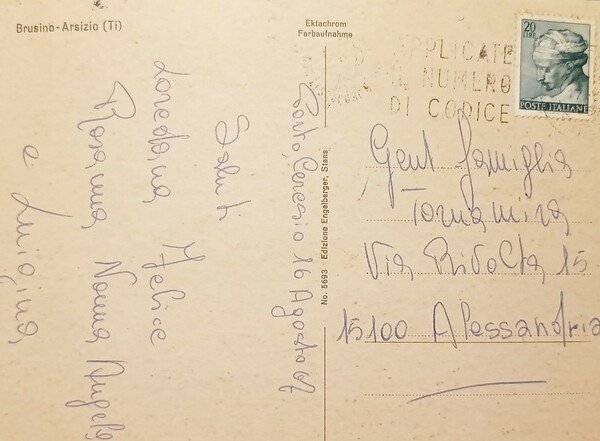 Brusino-Arsizio (Ti)
Ektachrom
Farbaufnahme
20
LIRE
POSTE ITALIANE
APPLICATE
IL NUMERO
DI CODICE
Porto Ceresio 16 Agosto 67
Saluti
Loredana, Felice
Rosanna, Nonna Angela
e Luigina
No. 5693 Edizione Engelberger, Stans
Gent famiglia
Tornamira
Via Rivolta 15
15100 Alessandria